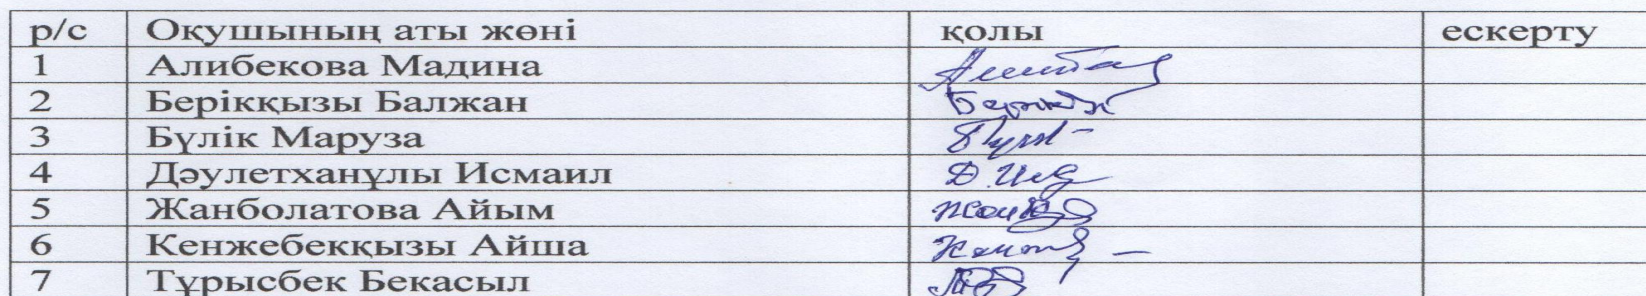 р/с Оқушының аты жөні қолы ескерту
1 Алибекова Мадина
2 Беріққызы Балжан
3 Бүлік Маруза
4 Дәулетханұлы Исмаил Д.
5 Жанболатова Айым
6 Кенжебекқызы Айша
7 Тұрысбек Бекасыл